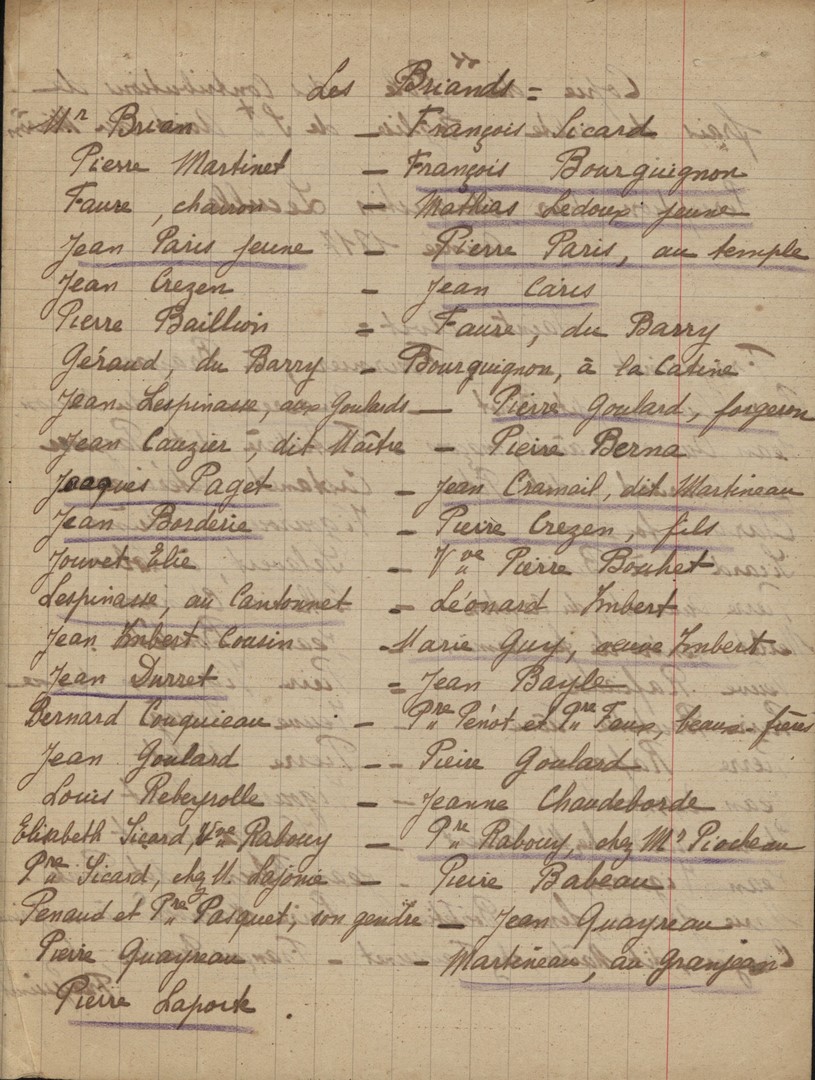 Les Briands =
Mr Brian — François Sicard
Pierre Martinet — François Bourguignon
Faure, charron — Mathias Ledoux jeune
Jean Paris jeune — Pierre Paris, au temple
Jean Crezen — Jean Caris
Pierre Baillion = Faure, du Barry
Géraud, du Barry — Bourguignon, à la Catine
Jean Lespinasse, aux Goulards — Pierre Goulard, forgeron
Jean Cauzier, dit Maître — Pierre Berna
Jacques Paget — Jean Cramail, dit Martineau
Jean Borderie — Pierre Crezen, fils
Jouvet Elie — Vve Pierre Bouhet
Lespinasse, au Cantonnet — Léonard Imbert
Jean Imbert Cousin — Marie Guy, veuve Imbert
Jean Durret = Jean Bayle
Bernard Couquieau — Pre Pénot et Pre Faux, beaux-frères
Jean Goulard — Pierre Goulard
Louis Rebeyrolle — Jeanne Chaudeborde
Elisabeth Sicard, Vve Rabouy — Pre Rabouy, chez Mr Piocheau
Pre Sicard, chez M. Lajonie — Pierre Babeau
Penaud et Pre Pasquet, son gendre — Jean Quayreau
Pierre Quayreau — Martineau, au Granjean
Pierre Laporte.